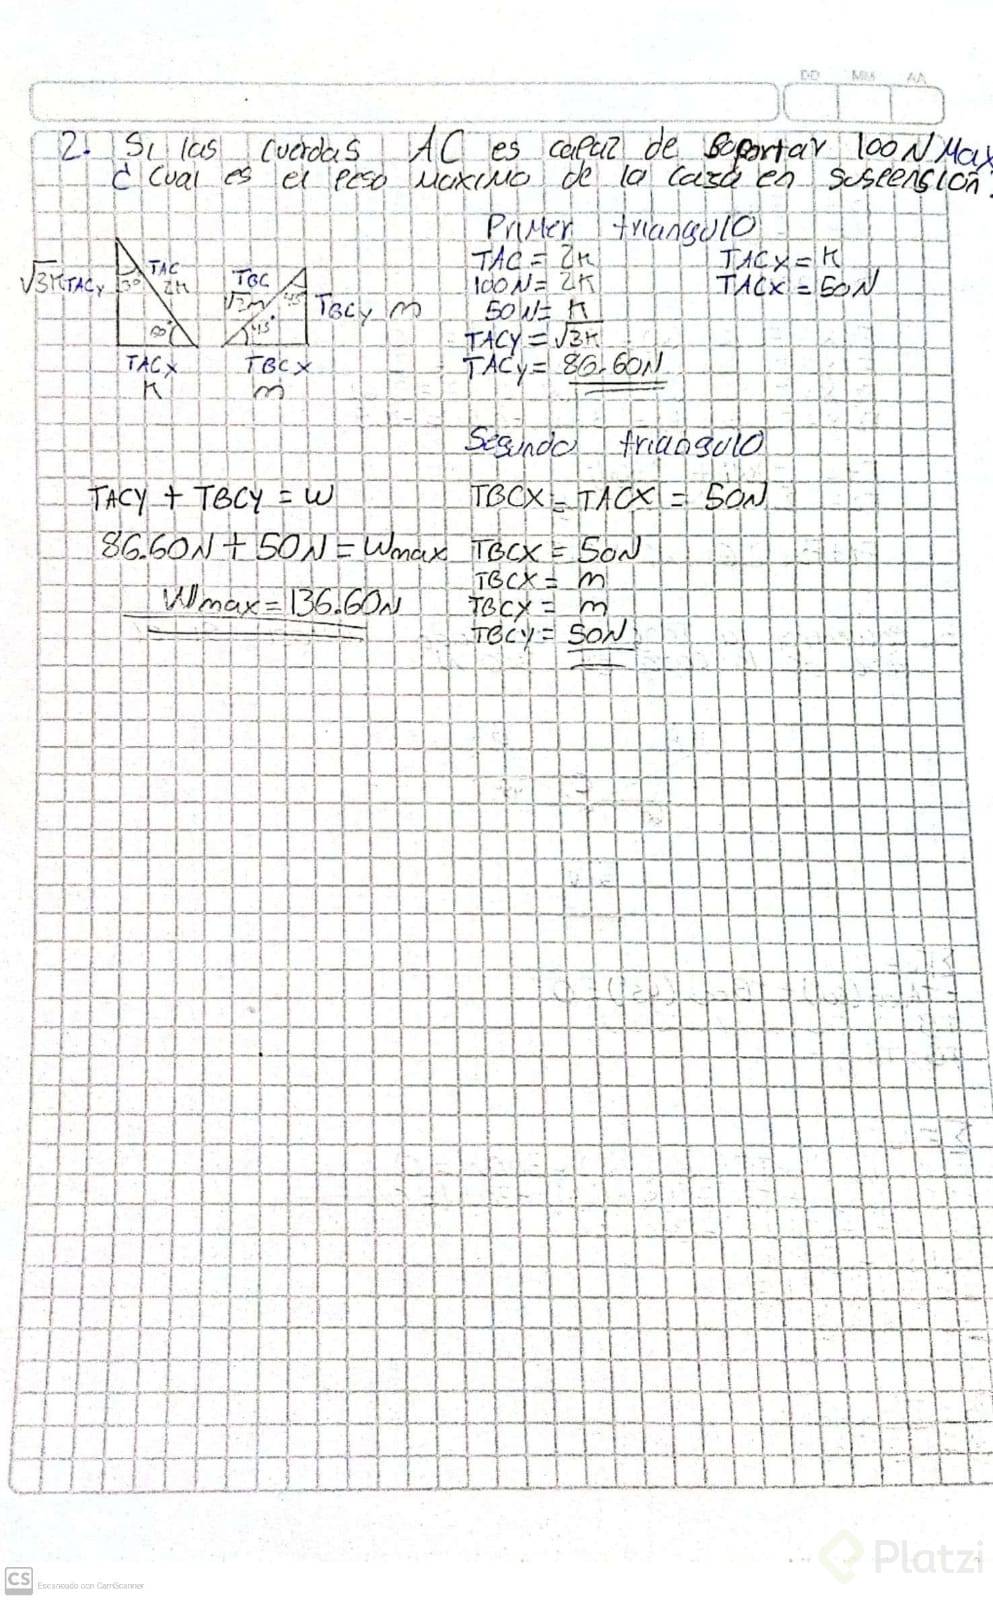 DD MM AA
2. Si las cuerdas AC es capaz de soportar 100N Max
¿ Cual es el peso maximo de la caja en suspension?
Primer triangulo
√3K TACY 30° TAC 2K
TBC √2m 45° 45° TBCY m
60°
TACX K
TBCX m
TAC = 2K
100N = 2K
50N = K
TACY = √3K
TACY = 86.60N
TACX = K
TACX = 50N
Segundo triangulo
TACY + TBCY = W
86.60N + 50N = Wmax
Wmax = 136.60N
TBCX = TACX = 50N
TBCX = 50N
TBCX = m
TBCY = m
TBCY = 50N
CS Escaneado con CamScanner
Platzi